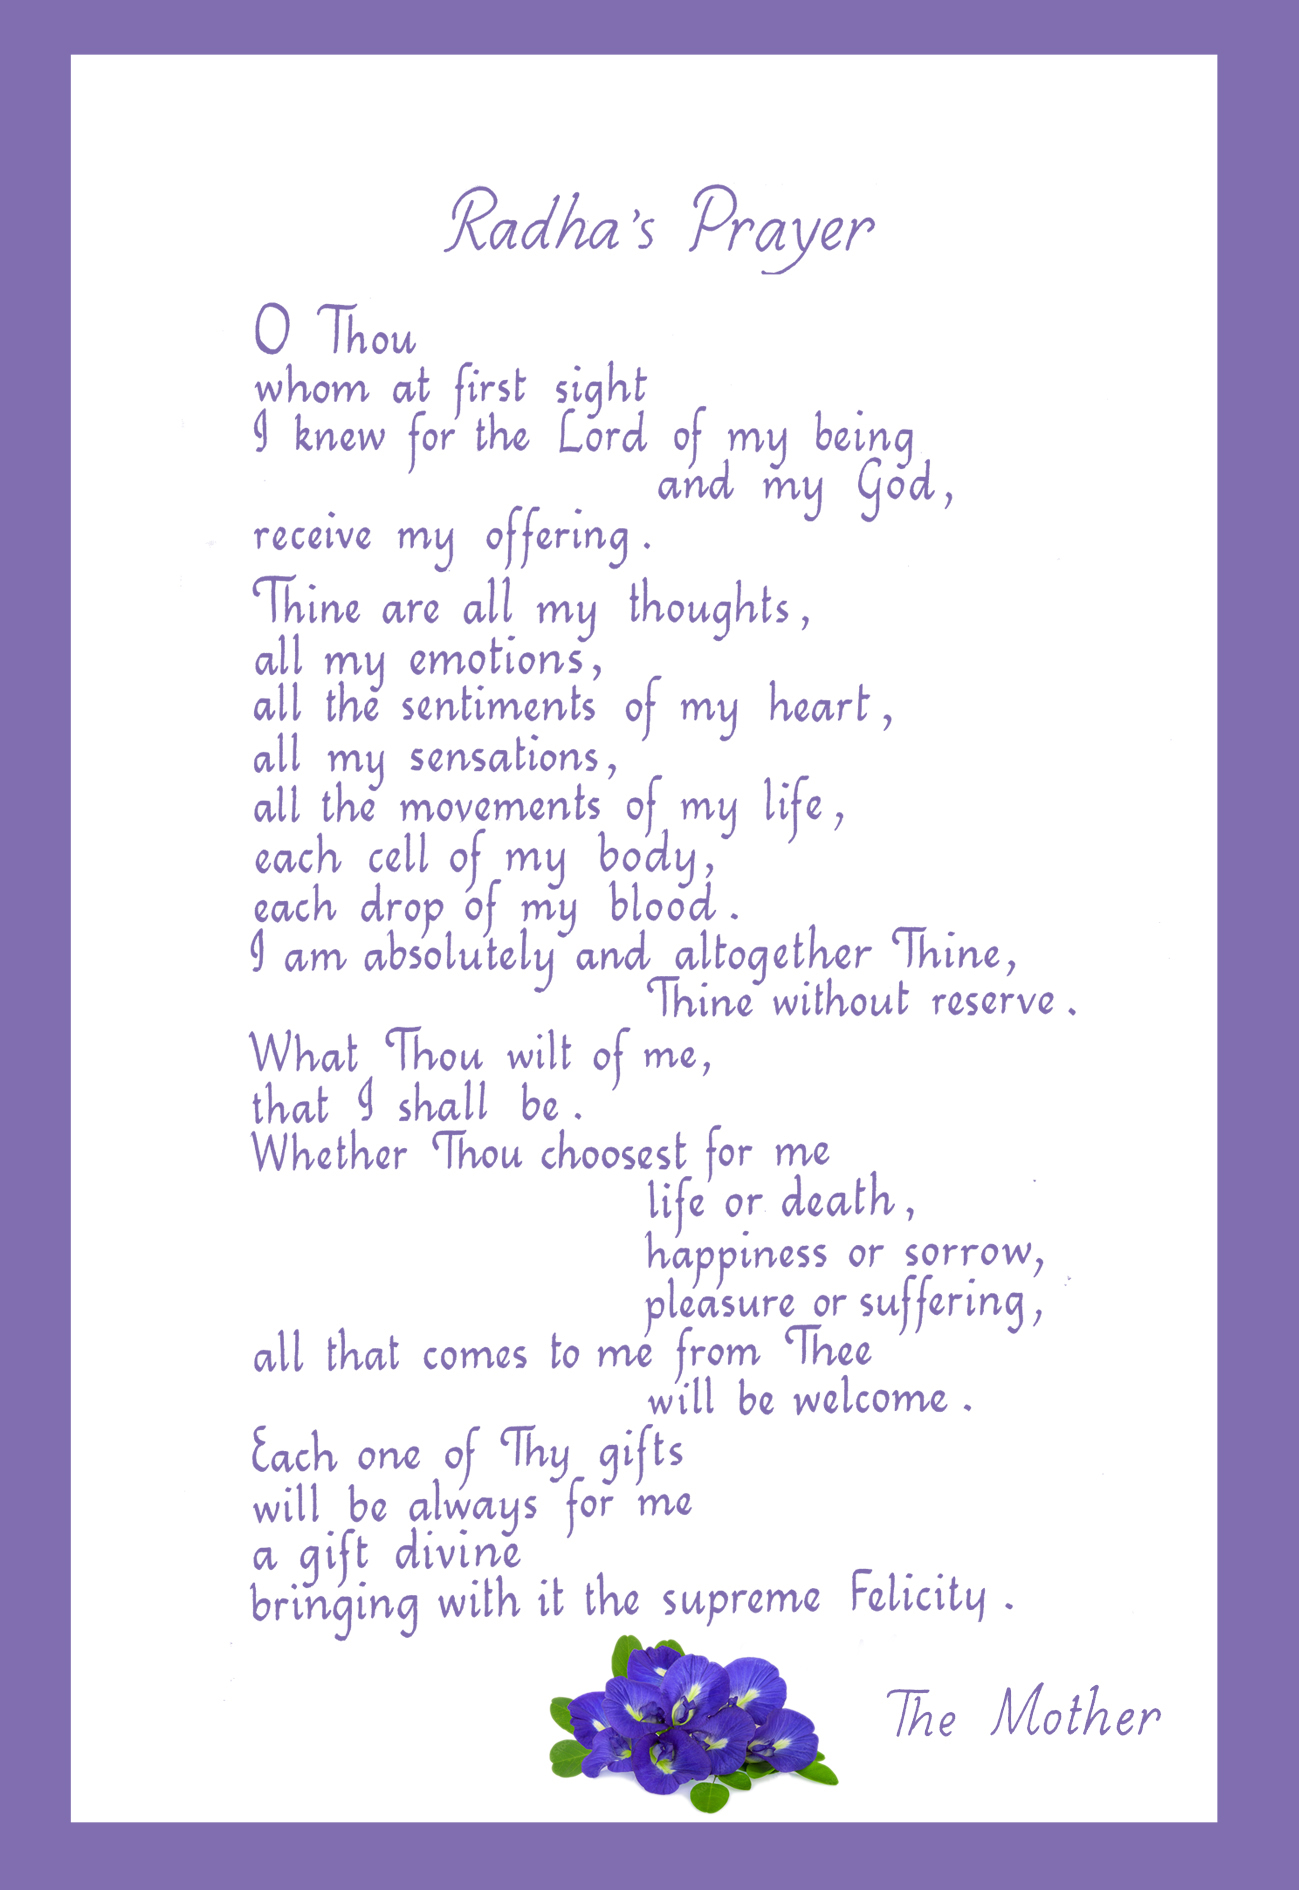 Radha's Prayer
O Thou
whom at first sight
I knew for the Lord of my being
and my God,
receive my offering.
Thine are all my thoughts,
all my emotions,
all the sentiments of my heart,
all my sensations,
all the movements of my life,
each cell of my body,
each drop of my blood.
I am absolutely and altogether Thine,
Thine without reserve.
What Thou wilt of me,
that I shall be.
Whether Thou choosest for me
life or death,
happiness or sorrow,
pleasure or suffering,
all that comes to me from Thee
will be welcome.
Each one of Thy gifts
will be always for me
a gift divine
bringing with it the supreme Felicity.
The Mother